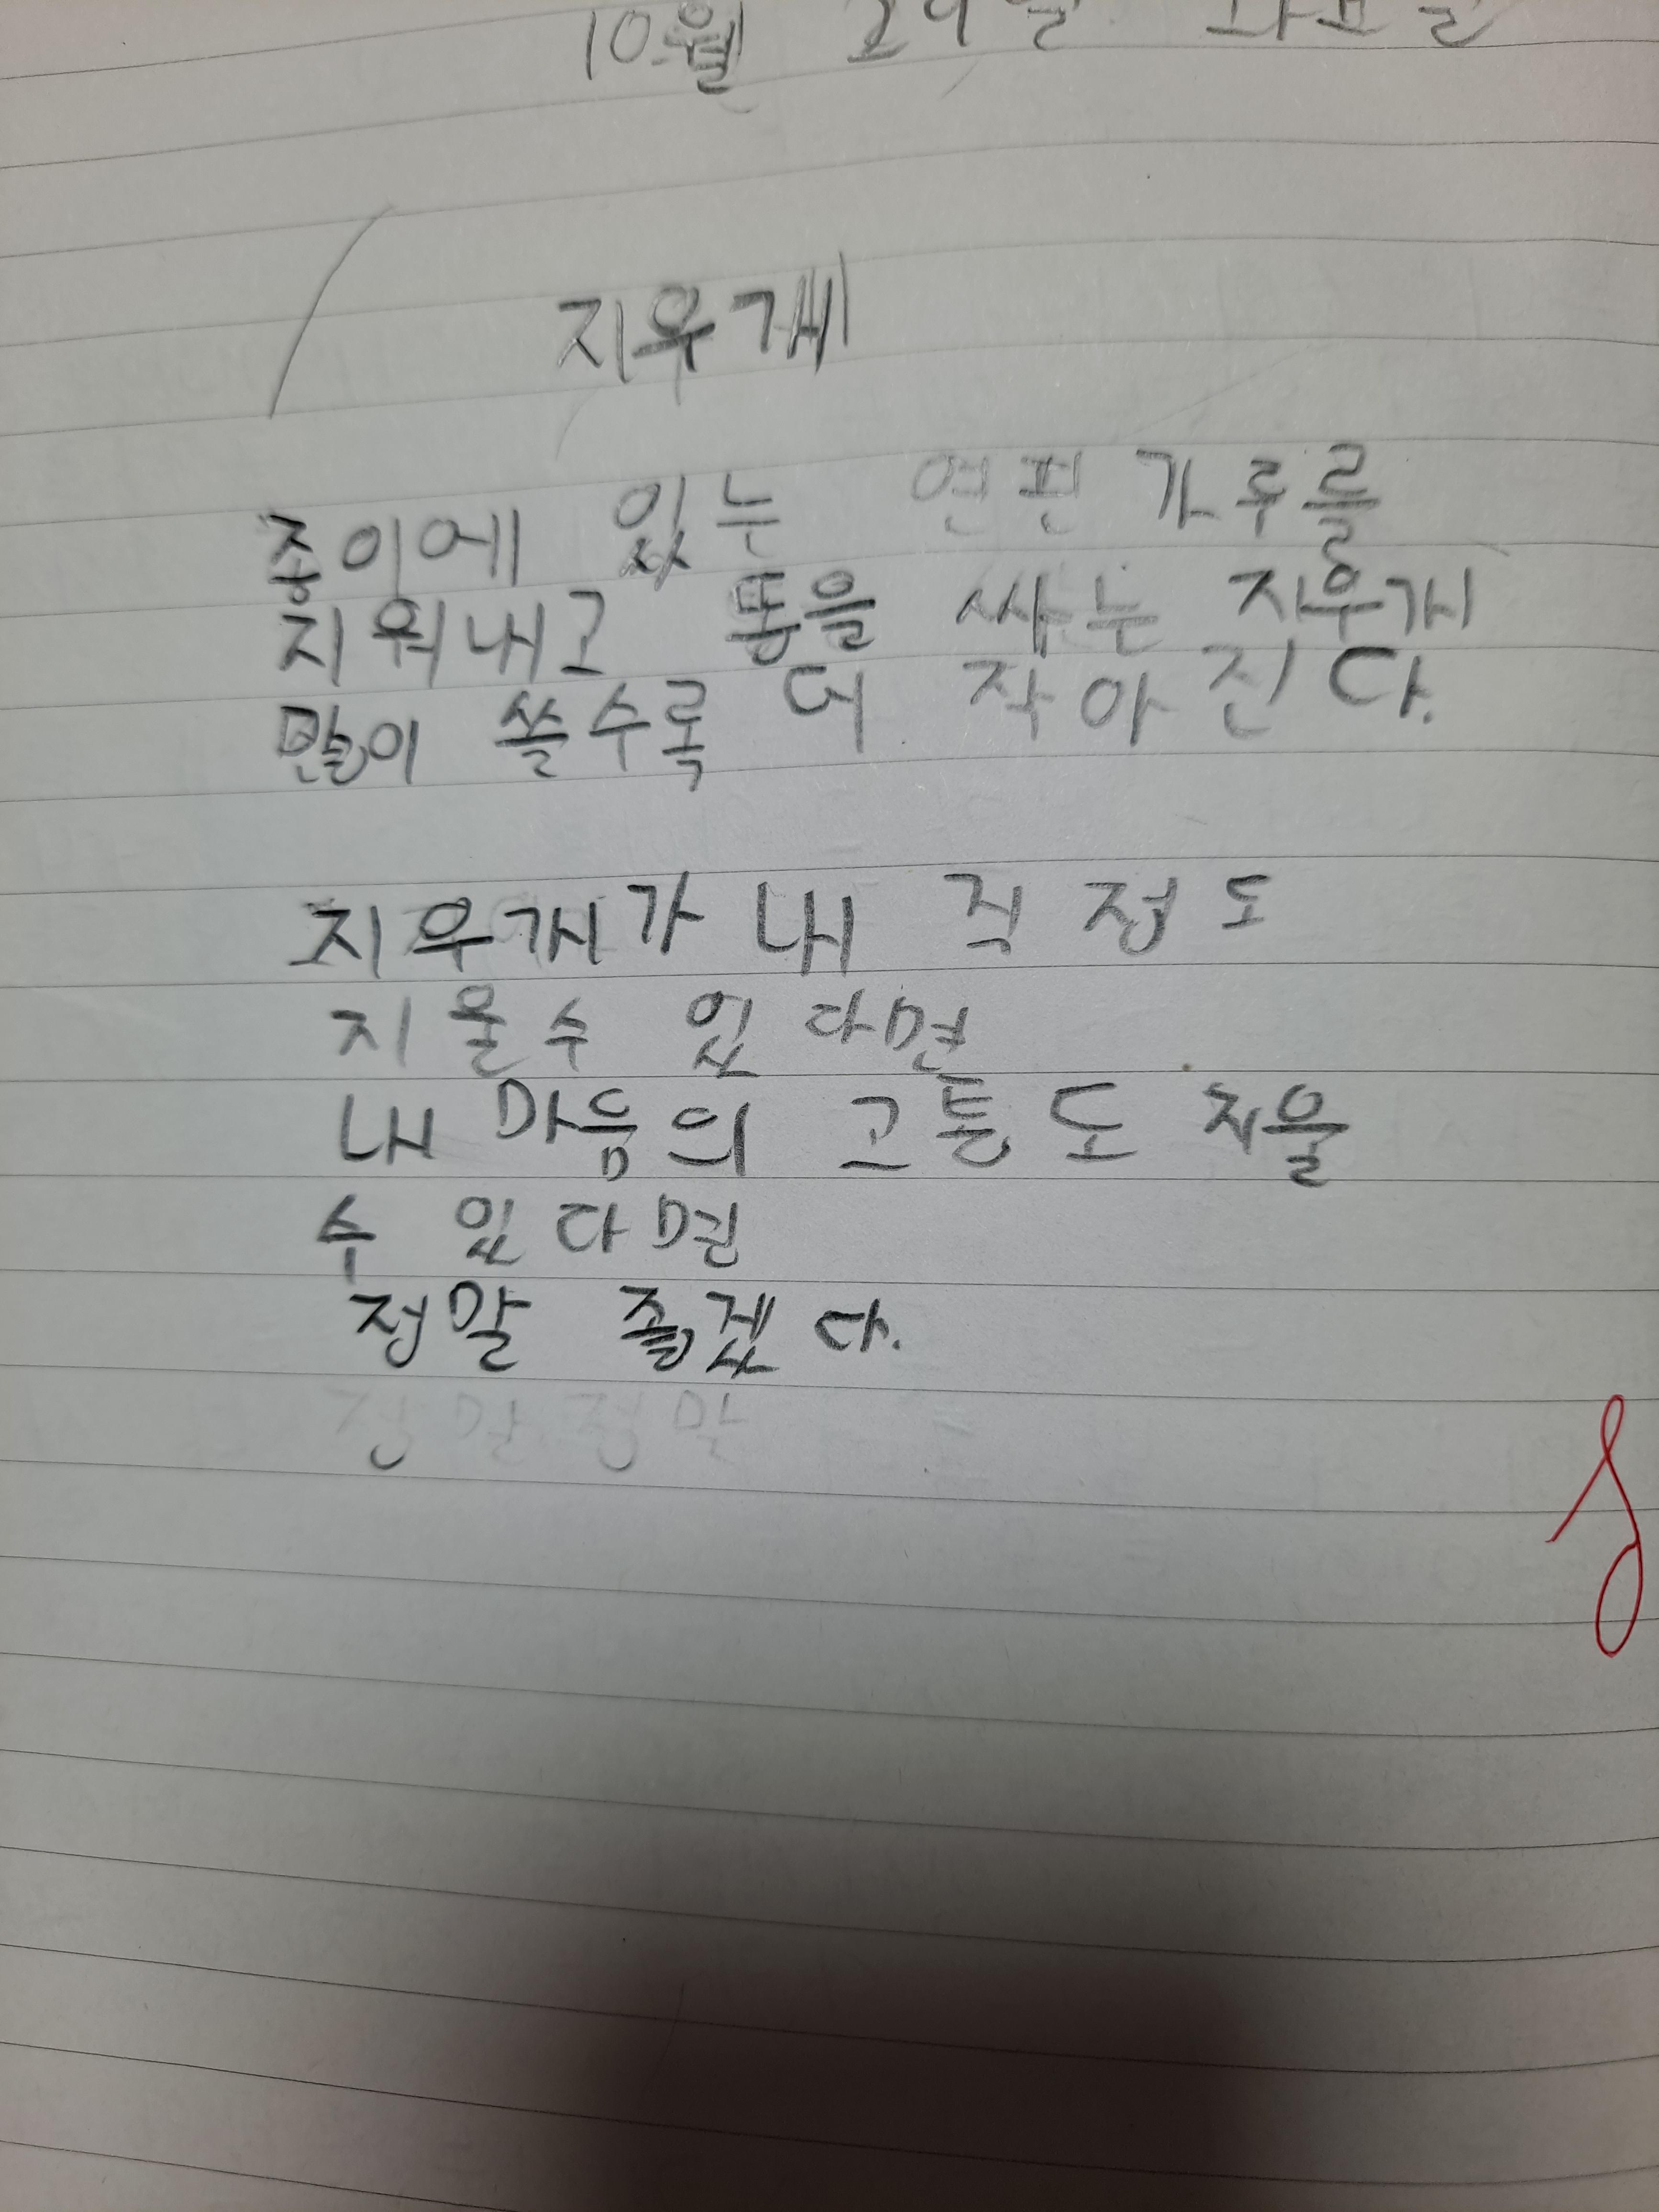 10월 29일 화요일
지우개
종이에 있는 연핀 가루를
지워내고 똥을 싸는 지우개
많이 쓸수록 더 작아진다.
지우개가 내 걱정도
지울수 있다면
내 마음의 고통도 지울
수 있다면
정말 좋겠다.
정말정말